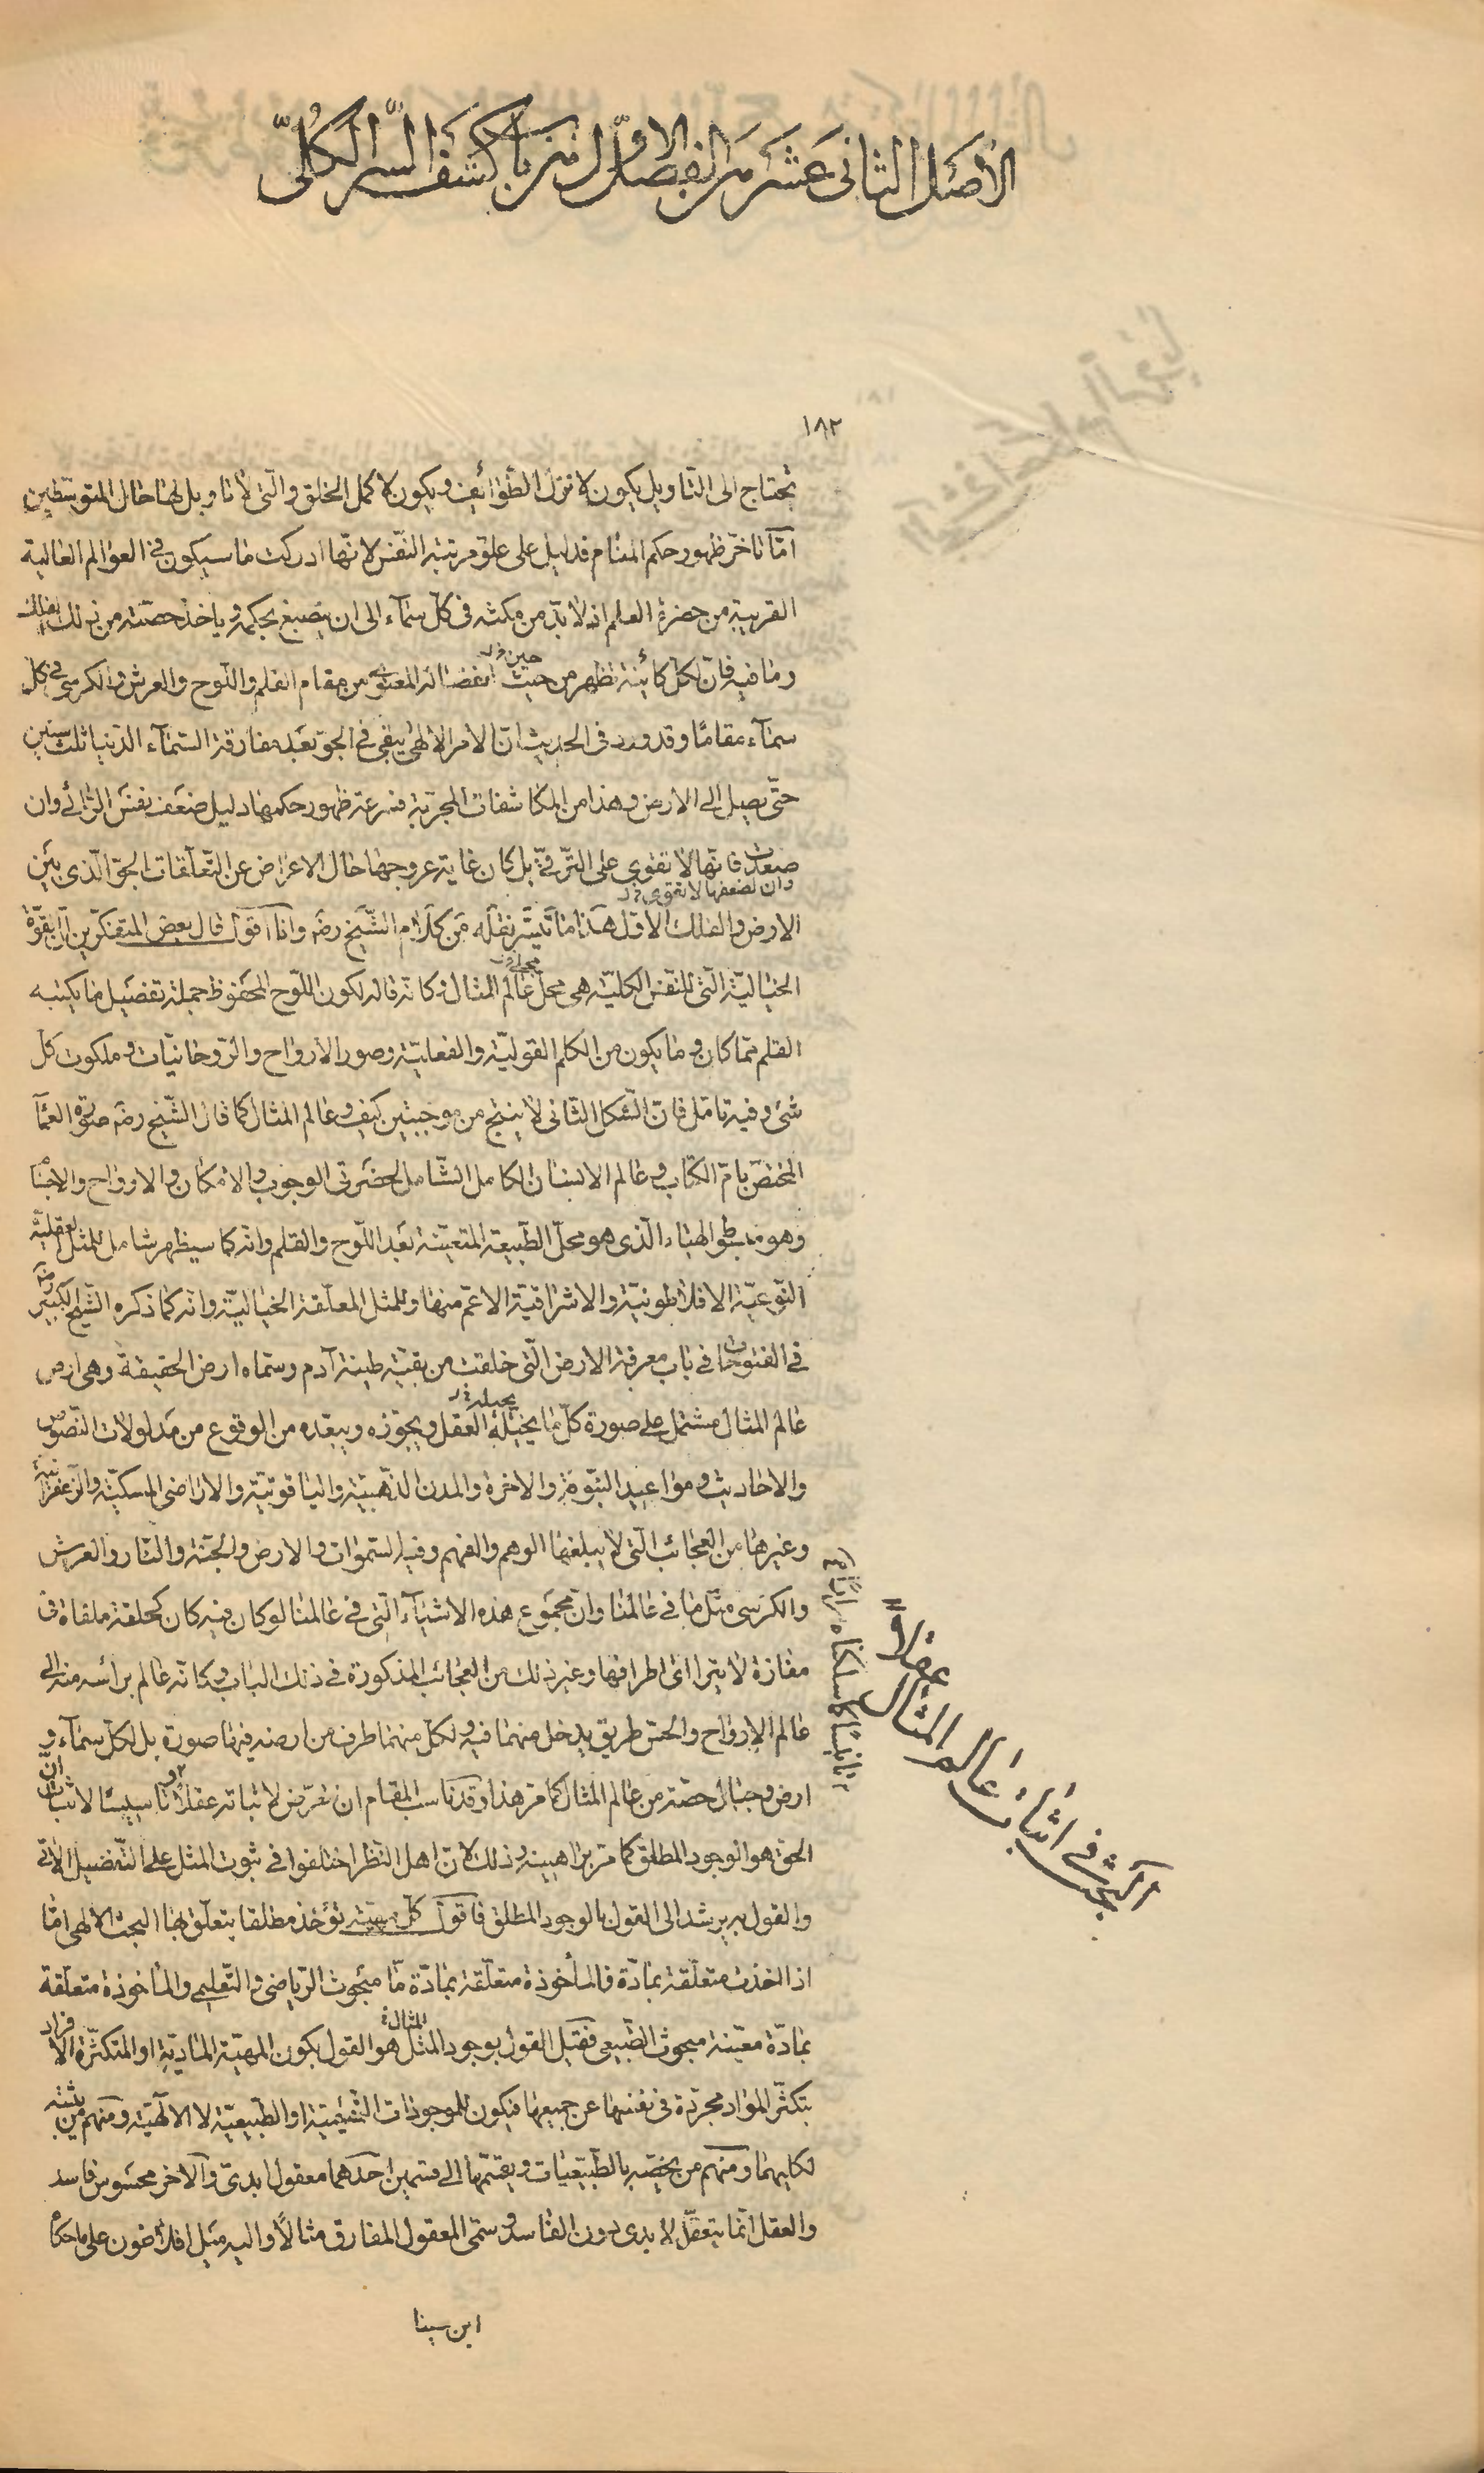 الاصل الثانى عشر من الفصل الاول من باب كشف السر الكلى
١٨٢
تحتاج الى التاويل يكون لانزل الطوائف ويكون لاكمل الخلق والتى لا تاويل لها حال المتوسطين
امّا تاخّر ظهور حكم المنام فدليل على علوّ مرتبة النفس لانّها ادركت ما سيكون فى العوالم العالية
القريبة من حضرة العلم اذ لا بدّ من مكثه فى كلّ سمآء الى ان ينصبغ بحكمه وياخذ حصّته من ذلك الفلك
وما فيه فانّ لكلّ كائنة تظهر من حيث انفصاله المعنوى من مقام القلم واللّوح والعرش والكرسى فى كلّ
حين
سمآء مقامًا وقد ورد فى الحديث انّ الامر الالهى يبقى فى الجوّ بعد مفارقة السّمآء الدّنيا ثلث سنين
حتّى يصل الى الارض وهذا من المكاشفات المجرّبة فسرعة ظهور حكمها دليل ضعف نفس الرّائى وان
صعدت فانّها لا تقوى على التّرقّى بل كان غاية عروجها حال الاعراض عن التّعلّقات الجوّ الّذى بين
وان لضعفها لا تقوى
الارض والفلك الاوّل هذا ما تيسّر نقله من كلام الشّيخ رضه وانا اقول قال بعض المتفكّرين انّ القوّة
الخياليّة الّتى للنّفس الكليّة هى محلّ عالم المثال وكانّه قاله لكون اللّوح المحفوظ جملة تفصيل ما يكتبه
القلم ممّا كان وما يكون من الكلم القوليّة والفعليّة وصور الارواح والرّوحانيّات وملكوت كلّ
شىء وفيه تامّل فانّ الشّكل الثّانى لا ينتج من موجبتين كيف وعالم المثال كما قال الشّيخ رضه صورة العمآ
المختصّ بامّ الكتاب وعالم الانسان الكامل الشّامل لحضرتى الوجوب والامكان والارواح والاجسام
وهو منبسط والهباء الّذى هو محلّ الطّبيعة المتعيّنة بعد اللّوح والقلم وانّه كما سيظهر شامل للمثل العقليّة
النّوعيّة الافلاطونيّة والاشراقيّة الاعمّ منها وللمثل المعلّقة الخياليّة وانّه كما ذكره الشّيخ الكبير رضه
فى الفتوحات فى باب معرفة الارض الّتى خلقت من بقيّة طينة آدم وسمّاه ارض الحقيقة وهى ارض
عالم المثال مشتمل على صورة كلّ ما يحيله العقل ويجوّزه ويبعده من الوقوع من مدلولات النّصوص
يحيله
والاحاديث ومواعيد النبّوة والاخرة والمدن الذّهبيّة والياقوتيّة والاراضى المسكيّة والزعفرانيّة
وغيرها من العجائب الّتى لا يبلغها الوهم والفهم وفيه السّموات والارض والجنّة والنّار والعرش
والكرسى مثل ما فى عالمنا وانّ مجموع هذه الاشيآء الّتى فى عالمنا لو كان فيه كان كحلقة ملقاة فى
مفازة لا يترااى اطرافها وغير ذلك من العجائب المذكورة فى ذلك الباب وكانّه عالم براسه منه الى
عالم الارواح والحسّ طريق يدخل منهما فيه ولكلّ منهما طرف من ارضه فيهما صورة بل لكلّ سمآء و
ارض وجبال حصّة من عالم المثال كما مرّ هذا وقد ناسب المقام ان نعرّض لاثباته عقلا وتاسيسًا لاثبات انّ
الحق هو الوجود المطلق كما مرّ براهينه وذلك لانّ اهل النّظر اختلفوا فى ثبوت المثل على التّفصيل الاتى
والقول به يرشد الى القول بالوجود المطلق فاقول كلّ مهيّة تؤخذ مطلقا يتعلّق بها البحث الالهى امّا
اذا اخذت متعلّقة بمادّة فالمأخوذة متعلّقة بمادّة مّا مبحوث الرّياضى والتّعليمى والمأخوذة متعلّقة
بمادّة معيّنة مبحوث الطّبيعى فقيل القول بوجود المثل هو القول بكون المهيّة الماديّة او المتكثّرة الافراد
المثال
بتكثّر المواد مجرّدة فى نفسها عن جميعها فيكون للموجودات التّعليميّة او الطّبيعيّة لا الالهيّة ومنهم من يثبته
لكليهما ومنهم من يخصّه بالطّبيعيات ويقسّمها الى قسمين احدهما معقول ابدىّ والاخر محسوس فاسد
والعقل انّما يتعقّل الابدى دون الفاسد وسمّى المعقول المفارق مثالًا واليه ميل افلاطون على ما حكاه
ابن سينا
البحث فى اثبات عالم المثال عقلا